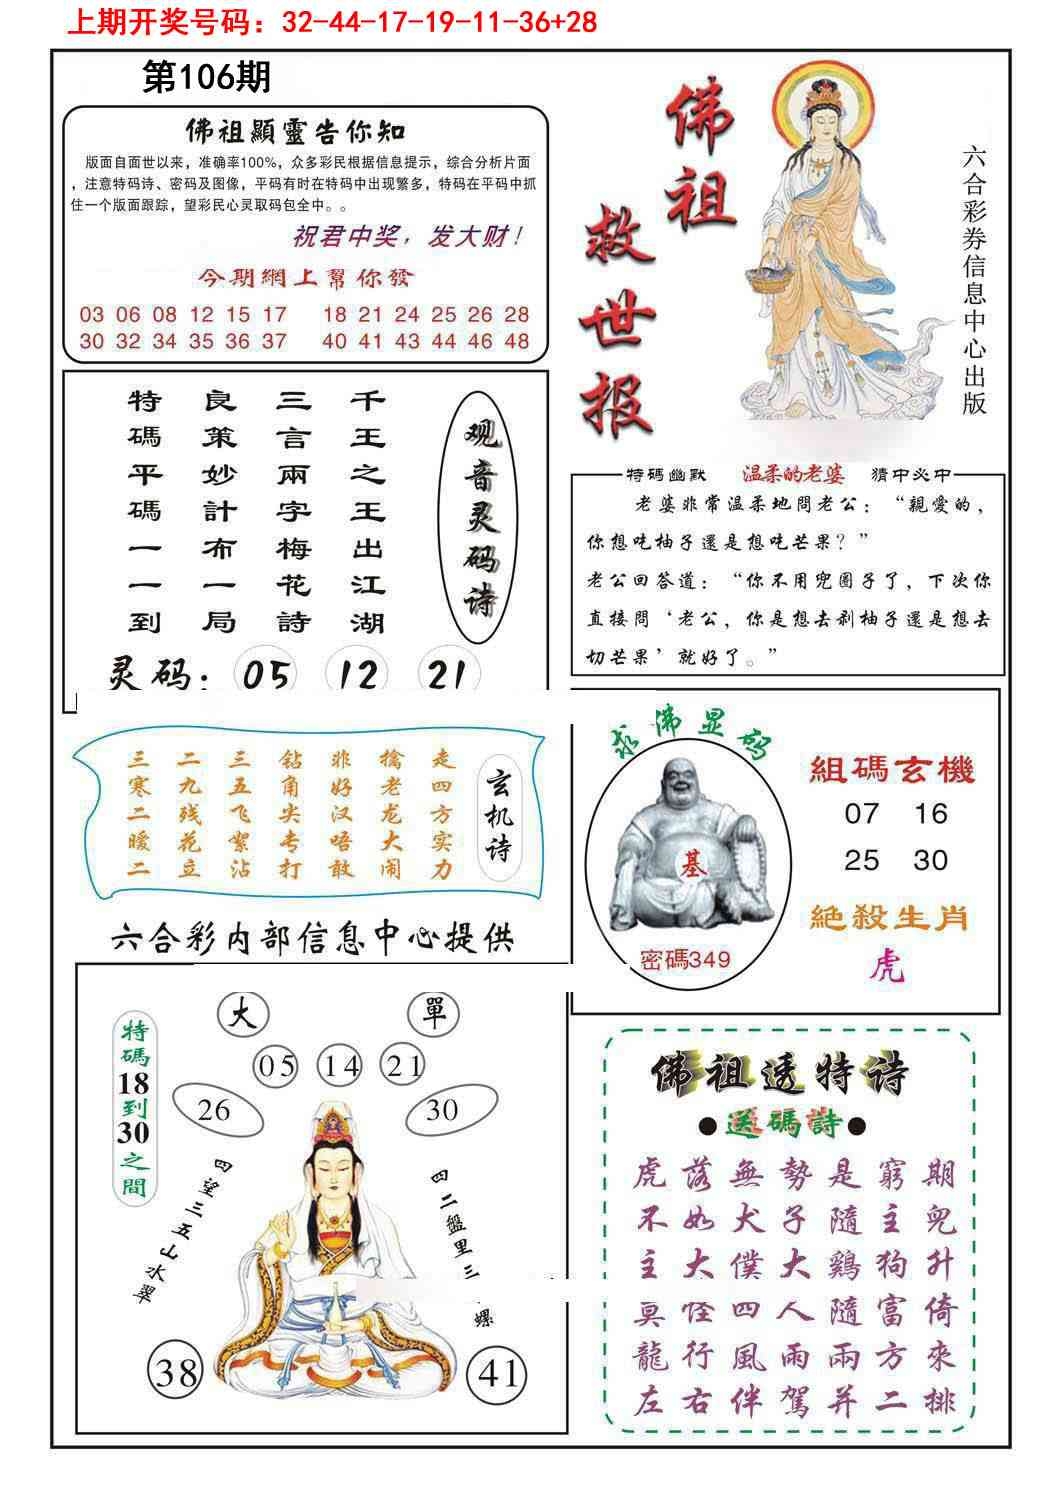 上期开奖号码：32-44-17-19-11-36+28
第106期
佛祖顯靈告你知
版面自面世以来，准确率100%，众多彩民根据信息提示，综合分析片面
，注意特码诗、密码及图像，平码有时在特码中出现繁多，特码在平码中抓
住一个版面跟踪，望彩民心灵取码包全中。。
祝君中奖，发大财！
今期網上幫你發
03 06 08 12 15 17 18 21 24 25 26 28
30 32 34 35 36 37 40 41 43 44 46 48
佛祖
救世报
六合彩券信息中心出版
观音灵码诗
千王之王出江湖
三言兩字梅花詩
良策妙計布一局
特碼平碼一一到
灵码：05 12 21
特碼幽默 温柔的老婆 猜中必中
老婆非常温柔地問老公：“親愛的，
你想吃柚子還是想吃芒果？”
老公回答道：“你不用兜圈子了，下次你
直接問‘老公，你是想去剥柚子還是想去
切芒果’就好了。”
玄机诗
走四方实力
擒老龙大闹
非好汉唔敢
钻角尖专打
三五飞絮沾
二九残花立
三寒二暧二
求佛显码
基
密碼349
組碼玄機
07 16
25 30
絕殺生肖
虎
六合彩内部信息中心提供
特碼18到30之間
大 單
05 14 21
26 30
四望三五山水翠
四二盤里三
螺
38 41
佛祖透特诗
●送碼詩●
虎落無勢是窮期
不如犬子隨主兜
主大僕大鷄狗升
真怪四人隨富倚
龍行風雨兩方來
左右伴駕并二排